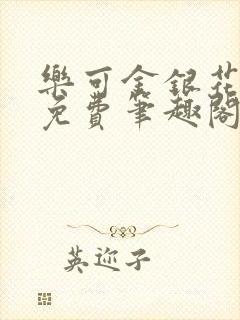 樂可金銀花
免費筆趣閣
英迩子